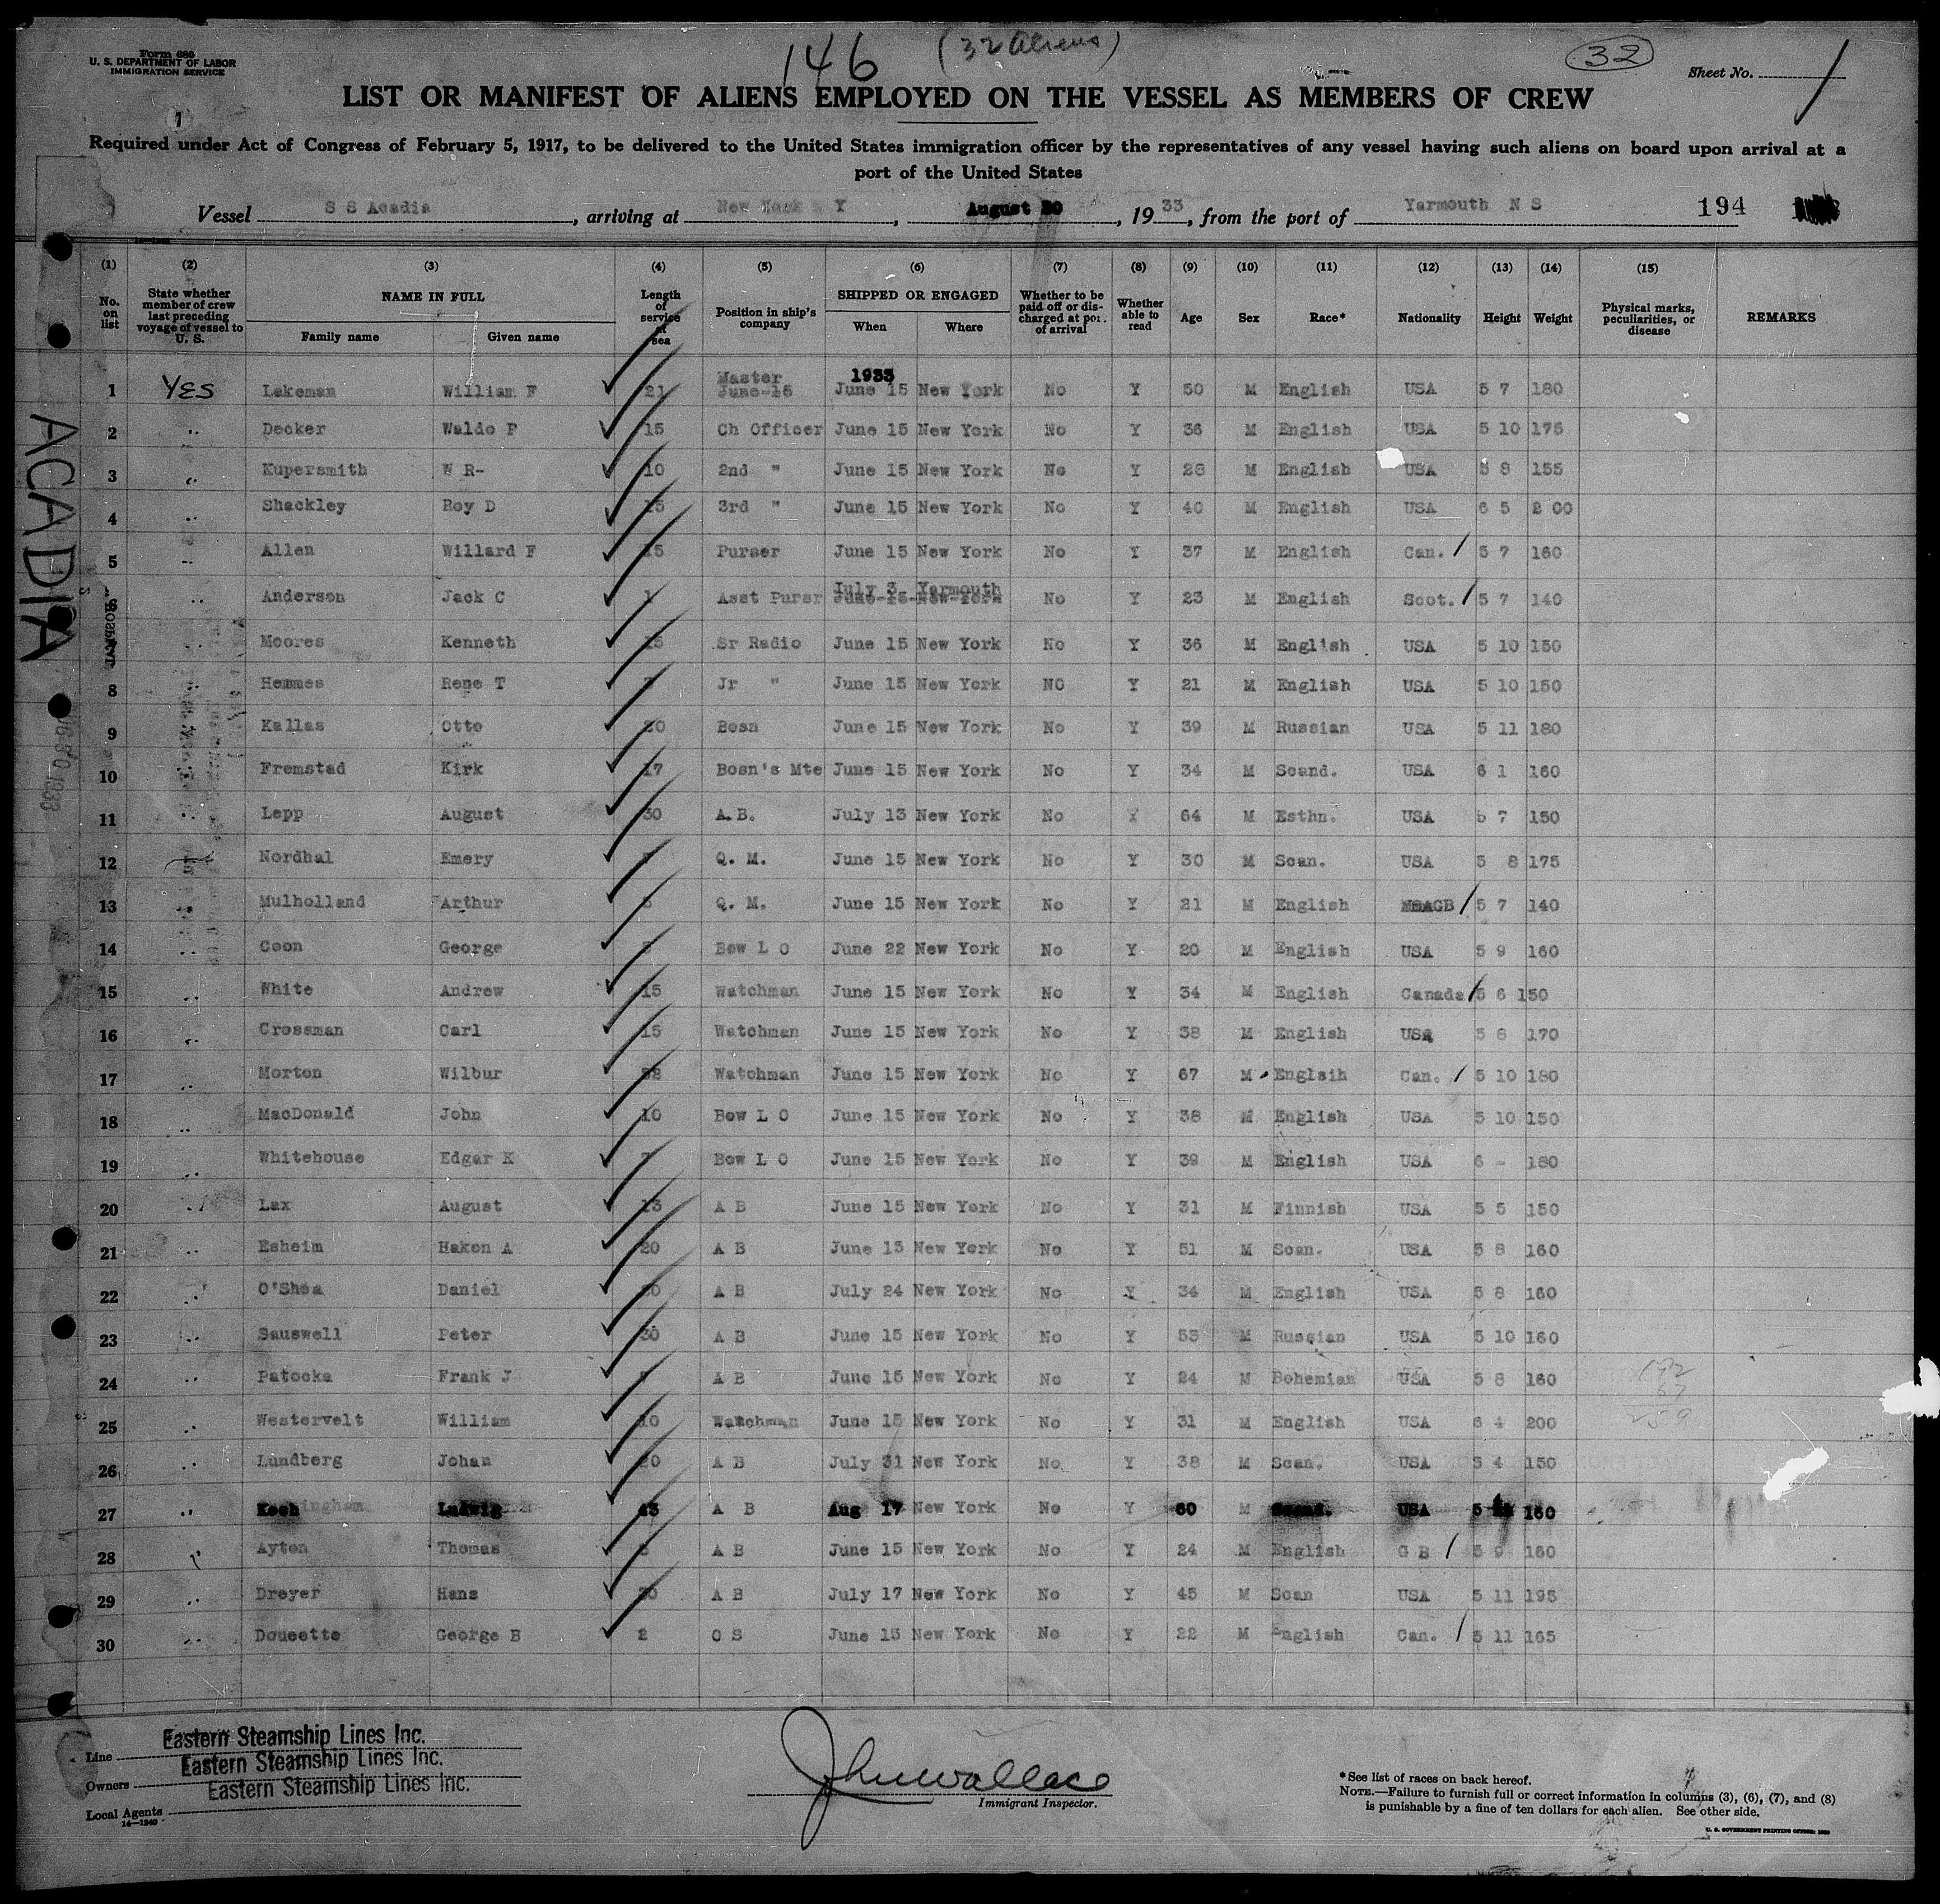 Form 680
U. S. DEPARTMENT OF LABOR
IMMIGRATION SERVICE
146 (32 Aliens)
32
Sheet No. 1
LIST OR MANIFEST OF ALIENS EMPLOYED ON THE VESSEL AS MEMBERS OF CREW
Required under Act of Congress of February 5, 1917, to be delivered to the United States immigration officer by the representatives of any vessel having such aliens on board upon arrival at a
port of the United States
Vessel S S Acadia, arriving at New York N Y, August 20, 1933, from the port of Yarmouth N S 194
(1) (2) (3) (4) (5) (6) (7) (8) (9) (10) (11) (12) (13) (14) (15)
No. on list State whether member of crew last preceding voyage of vessel to U. S. NAME IN FULL Family name Given name Length of service at sea Position in ship's company SHIPPED OR ENGAGED When Where Whether to be paid off or discharged at port of arrival Whether able to read Age Sex Race* Nationality Height Weight Physical marks, peculiarities, or disease REMARKS
Master 1933
1 YES Lakeman William F 21 June 15 June 15 New York No Y 50 M English USA 5 7 180
2 " Decker Waldo P 15 Ch Officer June 15 New York No Y 36 M English USA 5 10 175
3 " Kupersmith W R- 10 2nd " June 15 New York No Y 28 M English USA 5 8 155
4 " Shackley Roy D 15 3rd " June 15 New York No Y 40 M English USA 6 5 2 00
5 " Allen Willard F 15 Purser June 15 New York No Y 37 M English Can. / 5 7 160
July 3 Yarmouth
6 Anderson Jack C 1 Asst Pursr June 15 New York No Y 23 M English Scot. / 5 7 140
Moores Kenneth 15 Sr Radio June 15 New York No Y 36 M English USA 5 10 150
8 " Hemmes Rene T Jr " June 15 New York NO Y 21 M English USA 5 10 150
9 " Kallas Otto 20 Bosn June 15 New York No Y 39 M Russian USA 5 11 180
10 " Fremstad Kirk 17 Bosn's Mte June 15 New York No Y 34 M Scand. USA 6 1 160
11 " Lepp August 30 A.B. July 13 New York No Y 64 M Esthn. USA 5 7 150
12 " Nordhal Emery Q. M. June 15 New York No Y 30 M Scan. USA 5 8 175
13 " Mulholland Arthur Q. M. June 15 New York No Y 21 M English GB / 5 7 140
14 " Coon George Bow L O June 22 New York No Y 20 M English USA 5 9 160
15 " White Andrew 15 Watchman June 15 New York No Y 34 M English Canada / 5 6 150
16 " Crossman Carl 15 Watchman June 15 New York No Y 38 M English USA 5 6 170
17 " Morton Wilbur Watchman June 15 New York No Y 67 M Englsih Can. / 5 10 180
18 " MacDonald John 10 Bow L O June 15 New York No Y 38 M English USA 5 10 150
19 " Whitehouse Edgar K 7 Bow L O June 15 New York No Y 39 M English USA 6 - 180
20 " Lax August 13 A B June 15 New York No Y 31 M Finnish USA 5 5 150
21 " Esheim Hakon A 20 A B June 15 New York No Y 51 M Scan. USA 5 8 160
22 " O'Shea Daniel A B July 24 New York No Y 34 M English USA 5 8 160
23 " Sauswell Peter 30 A B June 15 New York No Y 53 M Russian USA 5 10 160
24 " Patocka Frank J A B June 15 New York No Y 24 M Bohemian USA 5 8 160
25 " Westervelt William 10 Watchman June 15 New York No Y 31 M English USA 6 4 200
26 " Lundberg Johan 20 A B July 31 New York No Y 38 M Scan. USA 5 4 150
27 " Koch Ludwig 45 A B Aug 17 New York No Y 60 M Scand. USA 5 160
28 " Ayton Thomas A B June 15 New York No Y 24 M English G B / 5 9 160
29 " Dreyer Hans 30 A B July 17 New York No Y 45 M Scan USA 5 11 195
30 " Doucette George B 2 O S June 15 New York No Y 22 M English Can. / 5 11 165
ACADIA
192
67
259
Line Eastern Steamship Lines Inc.
Owners Eastern Steamship Lines Inc.
Local Agents Eastern Steamship Lines Inc.
14—1240
John Wallace
Immigrant Inspector.
*See list of races on back hereof.
NOTE.—Failure to furnish full or correct information in columns (3), (6), (7), and (8)
is punishable by a fine of ten dollars for each alien. See other side.
U. S. GOVERNMENT PRINTING OFFICE: 1930